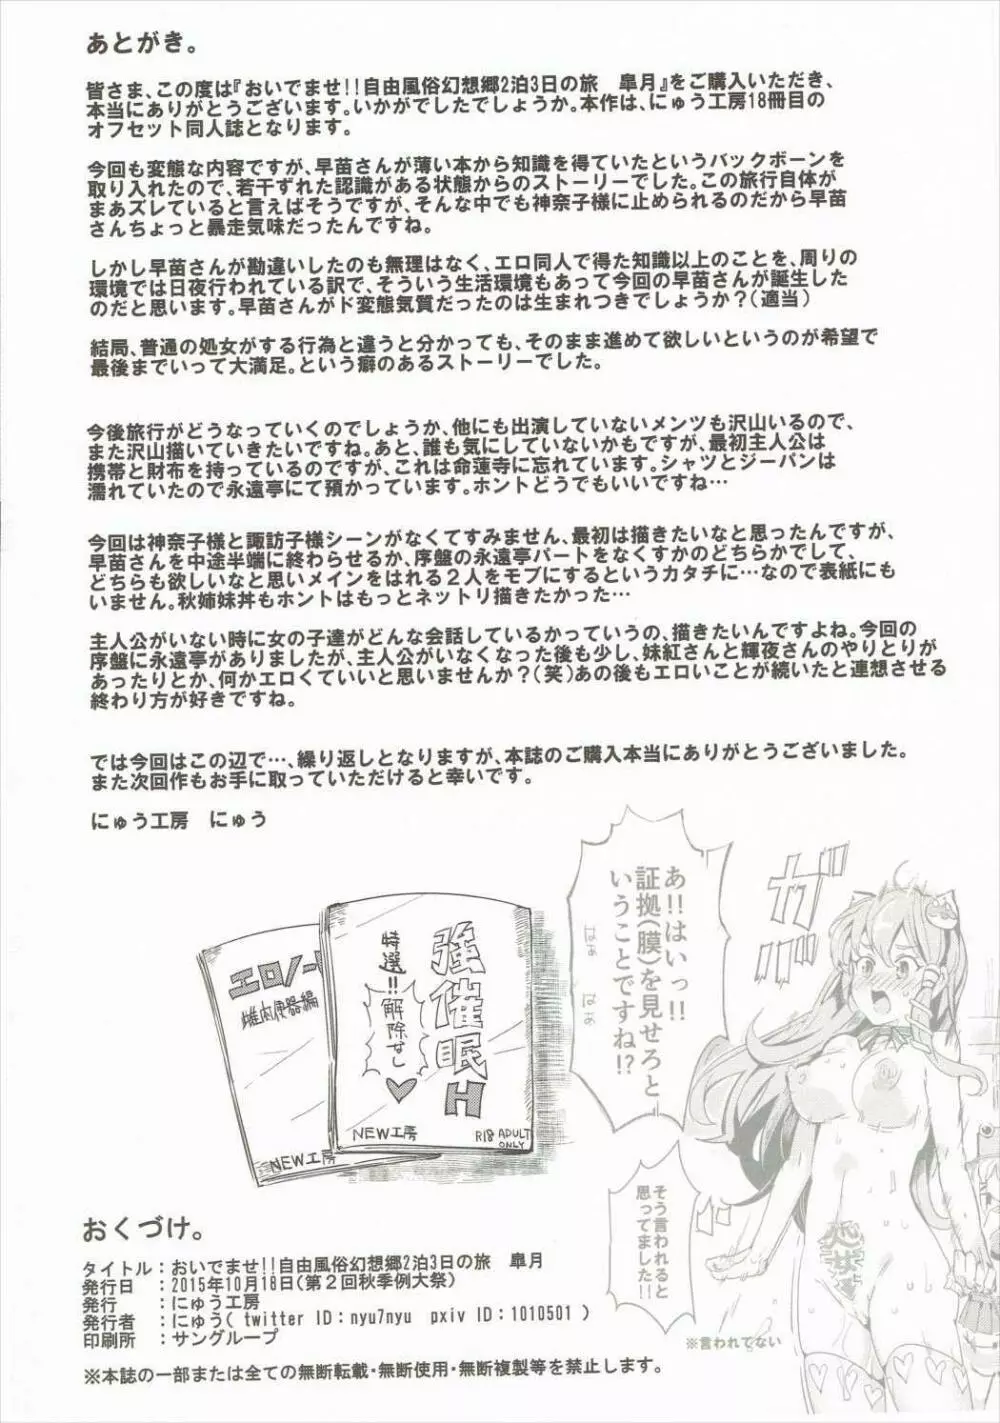 あとがき。
皆さま、この度は『おいでませ!!自由風俗幻想郷2泊3日の旅　皐月』をご購入いただき、
本当にありがとうございます。いかがでしたでしょうか。本作は、にゅう工房18冊目の
オフセット同人誌となります。
今回も変態な内容ですが、早苗さんが薄い本から知識を得ていたというバックボーンを
取り入れたので、若干ずれた認識がある状態からのストーリーでした。この旅行自体が
まあズレていると言えばそうですが、そんな中でも神奈子様に止められるのだから早苗
さんちょっと暴走気味だったんですね。
しかし早苗さんが勘違いしたのも無理はなく、エロ同人で得た知識以上のことを、周りの
環境では日夜行われている訳で、そういう生活環境もあって今回の早苗さんが誕生した
のだと思います。早苗さんがド変態気質だったのは生まれつきでしょうか？（適当）
結局、普通の処女がする行為と違うと分かっても、そのまま進めて欲しいというのが希望で
最後までいって大満足。という癖のあるストーリーでした。
今後旅行がどうなっていくのでしょうか、他にも出演していないメンツも沢山いるので、
また沢山描いていきたいですね。あと、誰も気にしていないかもですが、最初主人公は
携帯と財布を持っているのですが、これは命蓮寺に忘れています。シャツとジーパンは
濡れていたので永遠亭にて預かっています。ホントどうでもいいですね…
今回は神奈子様と諏訪子様シーンがなくてすみません、最初は描きたいなと思ったんですが、
早苗さんを中途半端に終わらせるか、序盤の永遠亭パートをなくすかのどちらかでして、
どちらも欲しいなと思いメインをはれる２人をモブにするというカタチに…なので表紙にも
いません。秋姉妹丼もホントはもっとネットリ描きたかった…
主人公がいない時に女の子達がどんな会話しているかっていうの、描きたいんですよね。今回の
序盤に永遠亭がありましたが、主人公がいなくなった後も少し、妹紅さんと輝夜さんのやりとりが
あったりとか、何かエロくていいと思いませんか？（笑）あの後もエロいことが続いたと連想させる
終わり方が好きですね。
では今回はこの辺で…、繰り返しとなりますが、本誌のご購入本当にありがとうございました。
また次回作もお手に取っていただけると幸いです。
にゅう工房　にゅう
あ!!はいっ!!
証拠(膜)を見せろと
いうことですね!?
はぁ
はぁ
ガバ
エロノー
雌肉便器編
NEW工房
強催眠H
特選!!解除なし♥
NEW工房
R18 ADULT
ONLY
そう言われると
思ってました!!
処女
※言われてない
おくづけ。
タイトル：おいでませ!!自由風俗幻想郷2泊3日の旅　皐月
発行日　：2015年10月18日（第２回秋季例大祭）
発行　　：にゅう工房
発行者　：にゅう( twitter ID：nyu7nyu　pxiv ID：1010501 )
印刷所　：サングループ
※本誌の一部または全ての無断転載・無断使用・無断複製等を禁止します。